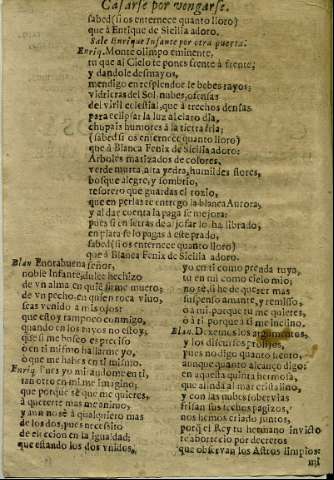 Casarse por vengarse.
sabed (si os enternece quanto lloro)
que à Enrique de Sicilia adoro.
Sale Enrique Infante por otra puerta.
Enriq. Monte olimpo eminente,
tu que al Cielo te pones frente à frente;
y dandole desmayos,
mendigo en resplendor le bebes rayos;
vidrieras del Sol, nubes, ofensas
del viril celestial, que à trechos densas
para eclipsar la luz al claro dia,
chupais humores à la tierra fria;
(sabed si os enternece quanto lloro)
que à Blanca Fenix de Sicilia adoro:
Arboles matizados de colores,
verde murta, alta yedra, humildes flores,
bosque alegre, y sombrio,
tesorero que guardas el rozio,
que en perlas te entrego la blanca Aurora,
y al dar cuenta la paga se mejora:
pues si en letras de aljofar lo ha librado,
en plata se lo pagas à este prado,
sabed (si os enternece quanto lloro)
que à Blanca Fenix de Sicilia adoro.
Blan. Enorabuena señor,
noble Infante, dulce hechizo
de vn alma en quien me muero;
de vn pecho en quien roca viuo,
seas venido à mis ojos:
que estoy tampoco conmigo,
quando en los tuyos no estoy;
que si me busco es preciso
ò en ti mismo hallarme yo,
ò que me halles en ti mismo.
Enriq. Pues yo mirandome en ti,
tan otro en mi me imagino;
que porque sè que me quieres,
à quererte mas me animo,
y aun no sè à qual quiero mas
de los dos, pues necessito
de eleccion en la igualdad;
que estando los dos vnidos,
yo en ti como prenda tuya,
tu en mi como cielo mio,
no sè, si he de querer mas
suspenso amante, y remisso,
ò à mi, porque tu me quieres,
ò à ti porque à ti me inclino.
Blan. Dexemos los argumentos,
y los discursos prolijos,
pues no digo quanto siento,
aunque quanto alcanço digo:
en aquella quinta hermosa,
que alinda al mar cristalino,
y con las nubes sobervias
frisan sus techos pagizos,
nos hemos criado juntos,
porq̃ el Rey tu hermano invicto
te aborrecio por decretos
que observan los Astros limpios: